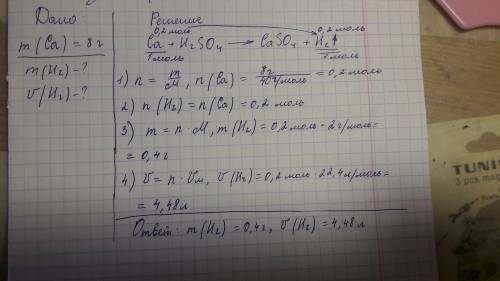 Дано
m(Ca)=8г
m(H₂)-?
V(H₂)-?
Решение
0,2 моль 0,2 моль
Ca + H₂SO₄ → CaSO₄ + H₂↑
1 моль 1 моль
1) n = m/M, n(Ca) = 8г/40г/моль = 0,2 моль
2) n(H₂) = n(Ca) = 0,2 моль
3) m = n · M, m(H₂) = 0,2 моль · 2г/моль =
= 0,4г
4) V = n · Vм, V(H₂) = 0,2 моль · 22,4л/моль =
= 4,48л
Ответ: m(H₂) = 0,4г, V(H₂) = 4,48л
TUNI
3 pcs mag